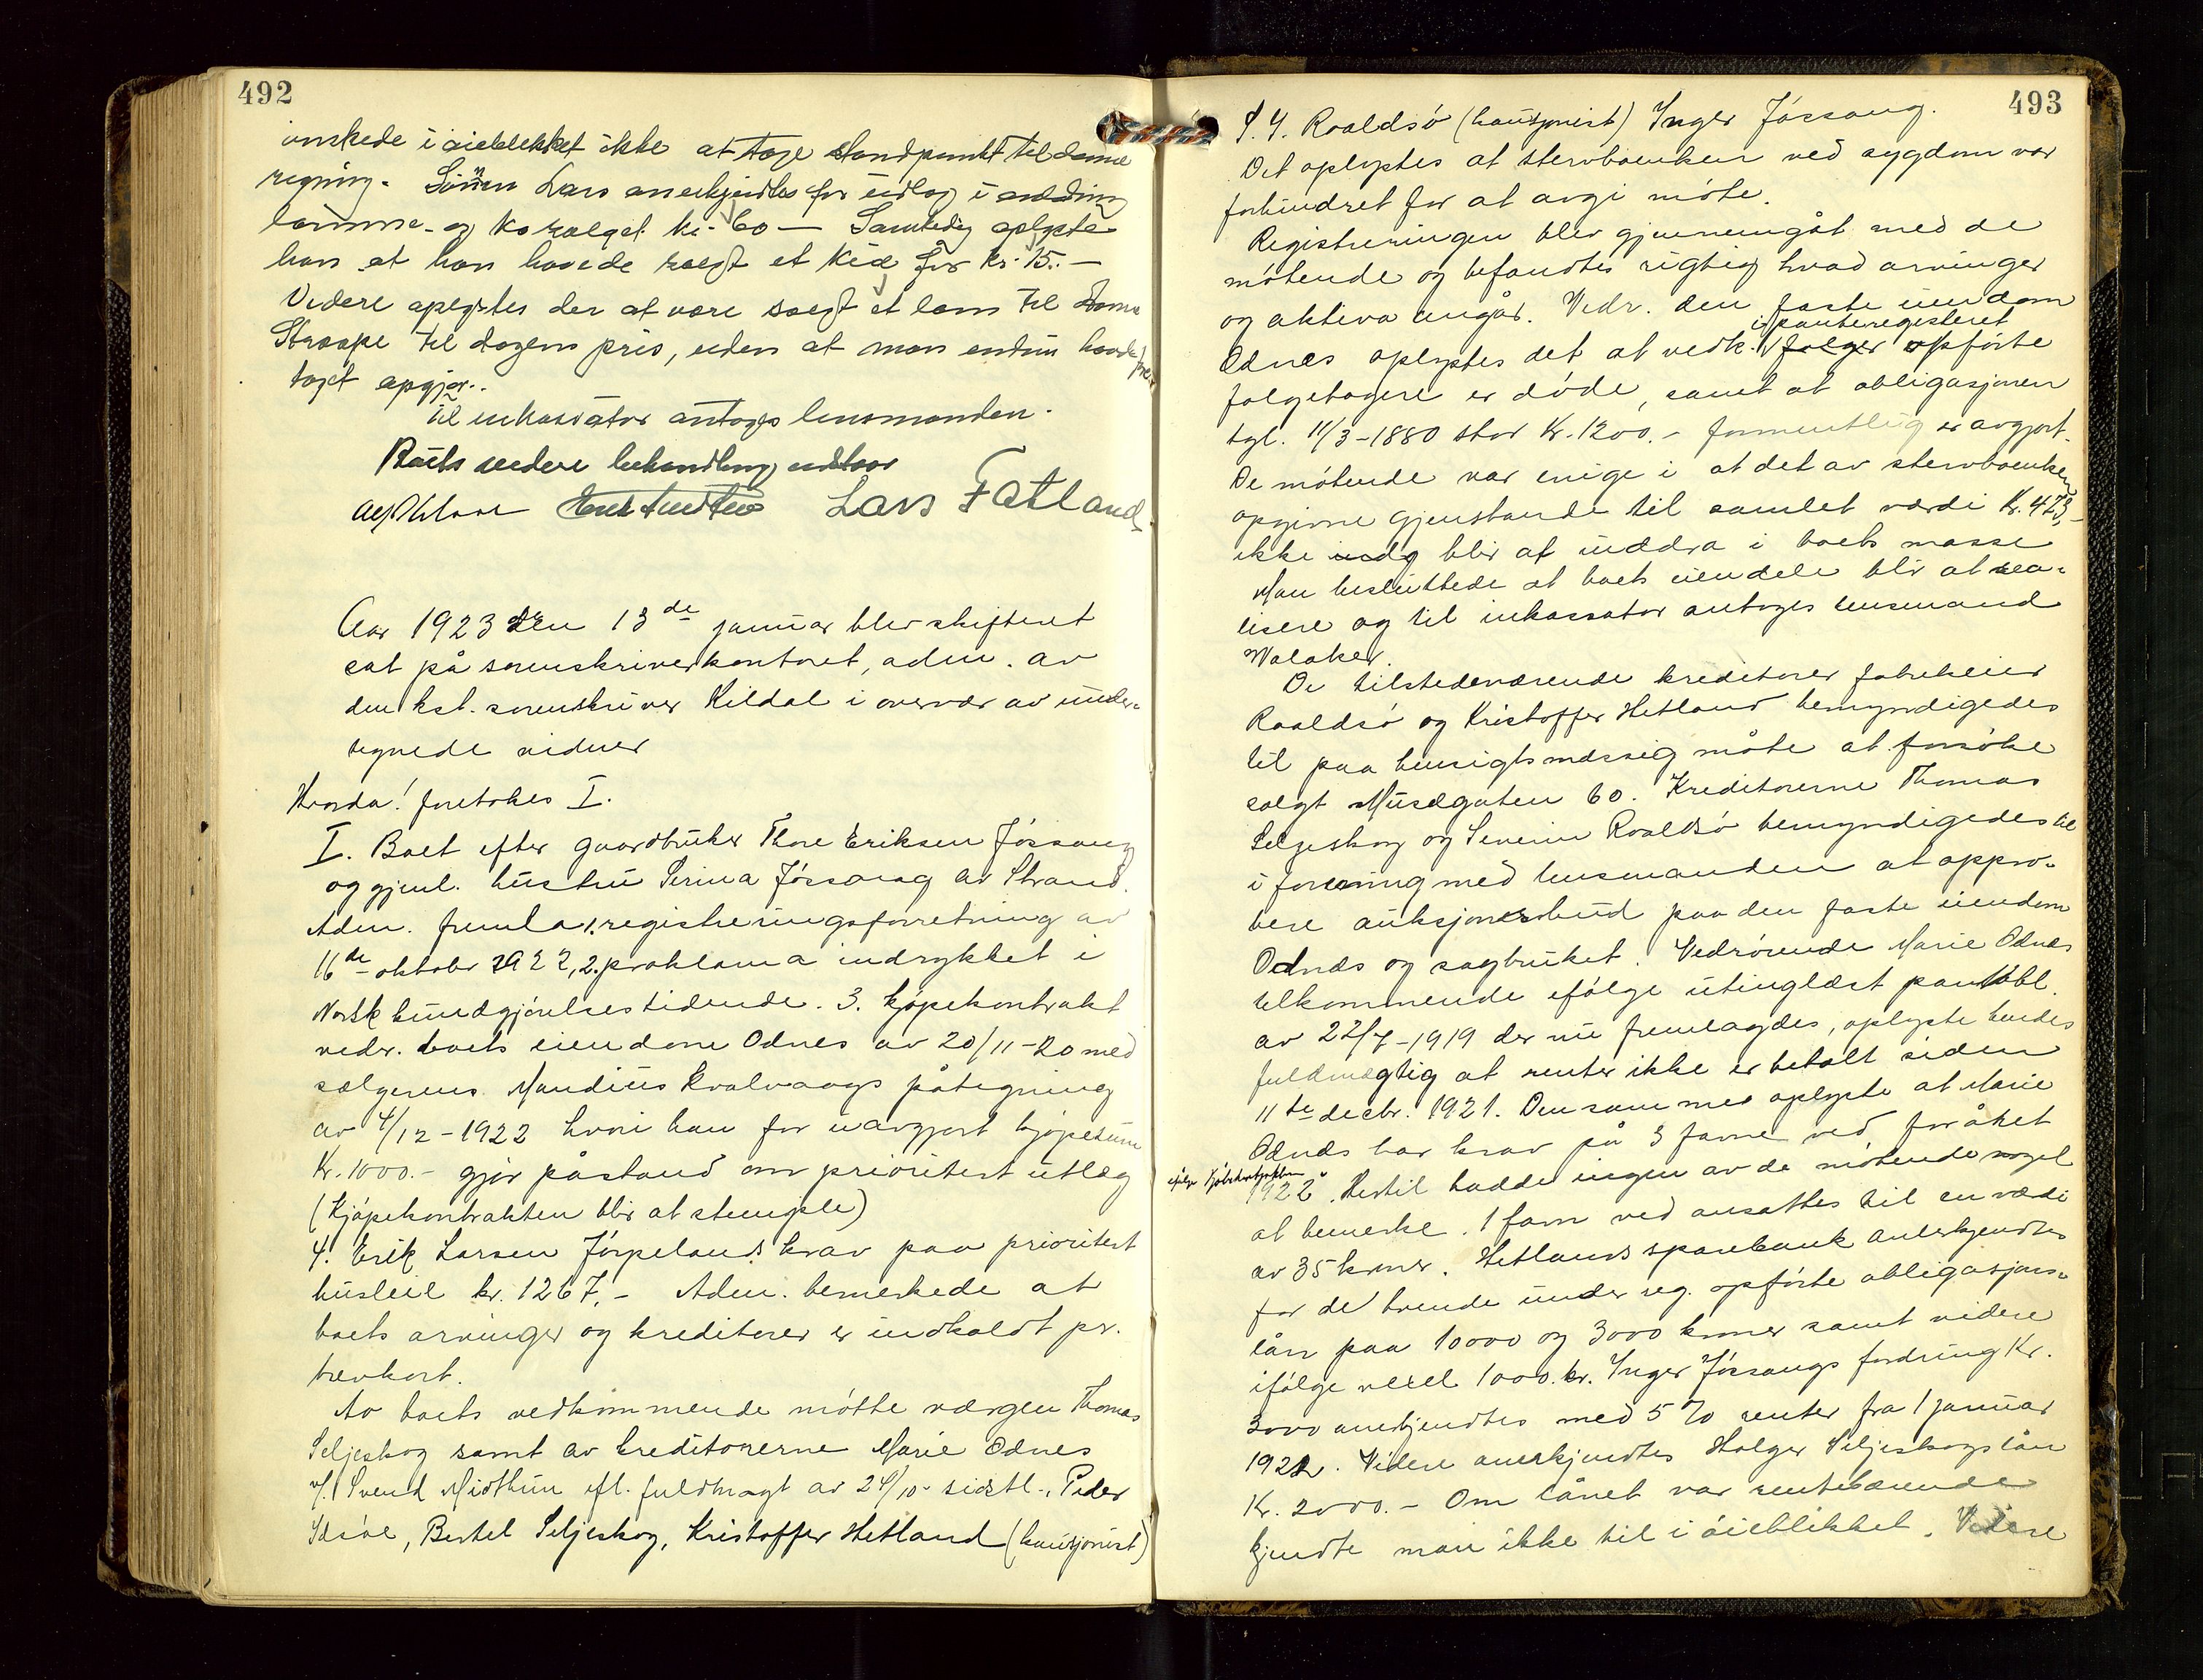 492
ønskede i øieblikket ikke at tage standpunkt til denne
regning. Sønnen Lars anerkjendtes for utlæg i anledning
lønning og kosalget kr. 60 — Samtidig oplyste
han at han havde solgt et kid for kr. 15.—
Videre oplystes der at være solgt et lam til
til dagens pris, uden at man endnu havde
taget opgjør.
Til inkassator antoges lensmanden.
Boets videre behandling utstaar
Lars Fatland
Aar 1923 den 13de januar blev skifteret
sat på sorenskriverkontoret, adm. av
den kst. sorenskriver Kildal i overvær av under-
tegnede vidner
Hvorda! foretokes I.
I. Boet efter gaardbruker Thore Eriksen Jøssang
og gjenl. hustru Serina Jøssang av Strand.
Adm. fremla 1. registreringsforretning av
16de oktober 1922, 2. proklama indrykket i
Norsk kundgjørelsestidende. 3. kjøpekontrakt
vedr. boets eiendom Odnes av 20/11-20 med
sælgerens Maudius Kvalvaags påtegning
av 4/12-1922 hvori han for uavgjort kjøpesum
Kr. 1000.- gjør påstand om prioritert utlæg
(Kjøpekontrakten blir at stemple)
4. Erik Larsen Jørpelands krav paa prioritert
husleie kr. 1267,- Adm. bemerkede at
boets arvinger og kreditorer er indkaldt pr.
brevkort.
Av boets vedkommende møtte værgen Thomas
Seljeskog samt av kreditorerne Marie Odnes
v/ Svend Midthun efl. fuldmagt av 24/10 sidstl., Peder
Idsøe, Bertel Seljeskog, Kristoffer Hetland (kausjonist)
493
S. Y. Roaldsø (kausjonist) Inger Jøssang.
Det oplystes at stervboenken ved sygdom var
forhindret for at avgi møte.
Registreringen blev gjennemgåt med de
møtende og befandtes rigtig hvad arvinger
og aktiva angår. Vedr. den faste eiendom
i panteregisteret
Odnes oplystes det at vedk. følger opførte
følgetagere er døde, samt at obligasjonen
tgl. 11/3-1880 stor Kr. 1200.- formentlig er avgjort.
De møtende var enige i at det av stervboenken
opgivne gjenstande til samlet værdi Kr. 473,-
ikke indg blir at inddra i boets masse
Man besluttede at boets eiendele blir at rea-
lisere og til inkassator antoges lensmand
Walaker.
De tilstedeværende kreditorer fabrikeier
Roaldsø og Kristoffer Hetland bemyndigedes
til paa hensigtsmæssig måte at forsøke
solgt Musægaten 60. Kreditorerne Thomas
Seljeskog og Severin Roaldsø bemyndigedes til
i forening med lensmanden at appro-
bere auksjonsbud paa den faste eiendom
Odnes og sagbruket. Vedrørende Marie Odnes
tilkommende ifølge utinglæst pantobl.
av 22/7-1919 der nu fremlagdes, oplyste hendes
fuldmægtig at renter ikke er betalt siden
11te decbr. 1921. Den samme oplyste at Marie
Odnes har krav på 3 favne ved for året
ifølge kjøbekontrakten
1922. Hertil hadde ingen av de møtende noget
at bemerke. 1 favn ved ansattes til en værdi
av 35 kroner. Hetlands sparebank anerkjendtes
for de tvende under reg. opførte obligasjons-
lån paa 10000 og 3000 kroner samt videre
ifølge vexel 1000.kr. Inger Jøssangs fordring Kr.
3000 anerkjendtes med 5% renter fra 1 januar
1922. Videre anerkjendtes Holger Seljeskogs lån
Kr. 2000.- Om lånet var rentebærende
kjendte man ikke til i øieblikket. Videre